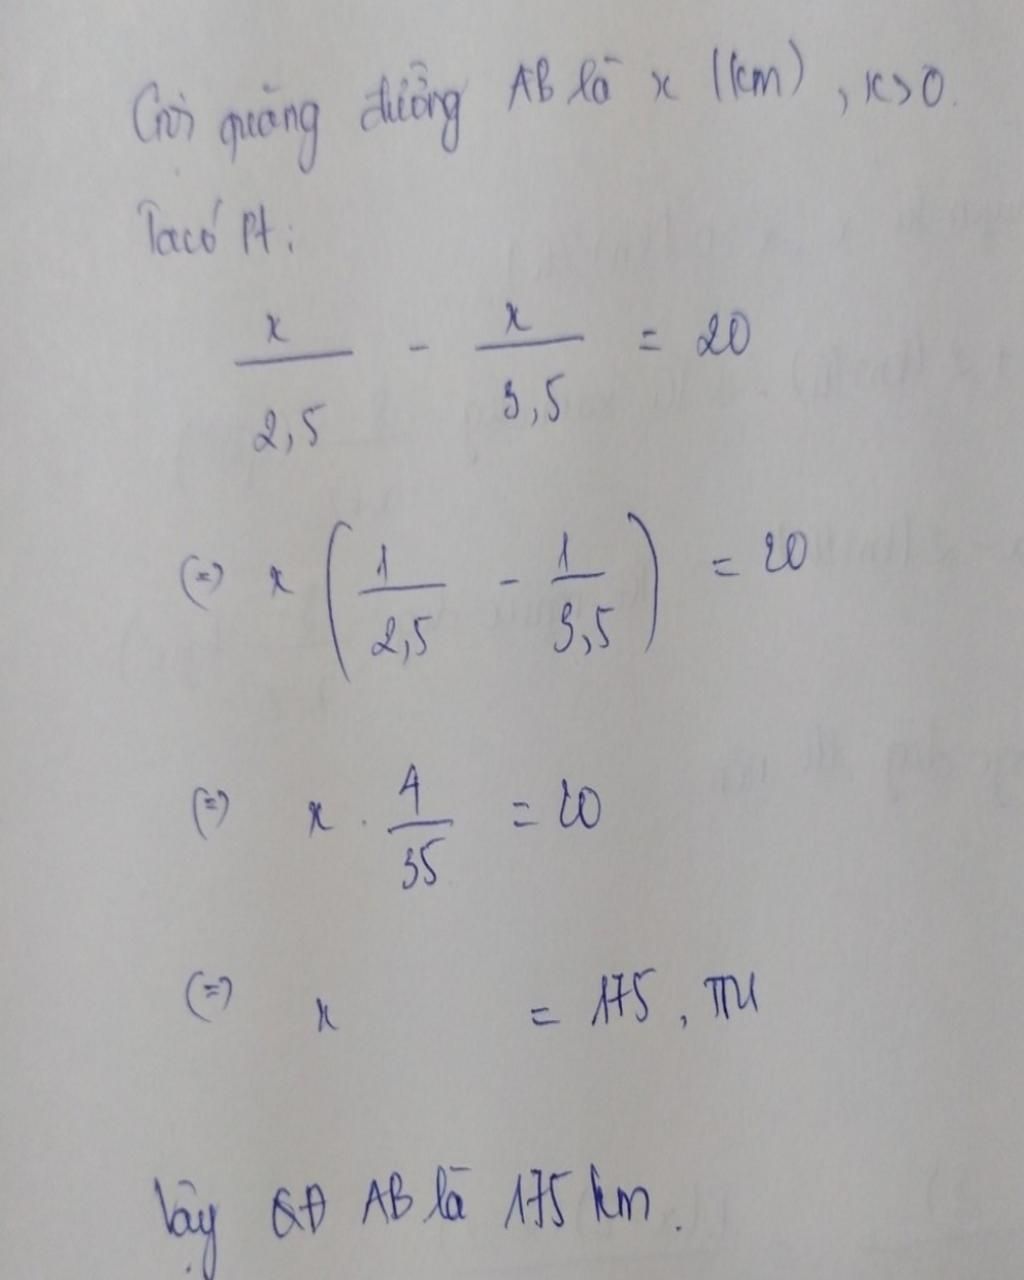 Gọi quãng đường AB là x (km), x>0.
Ta có Pt:
x/2,5 - x/3,5 = 20
(=) x (1/2,5 - 1/3,5) = 20
(=) x . 4/35 = 20
(=) x = 175, TM
Vậy QĐ AB là 175 km.